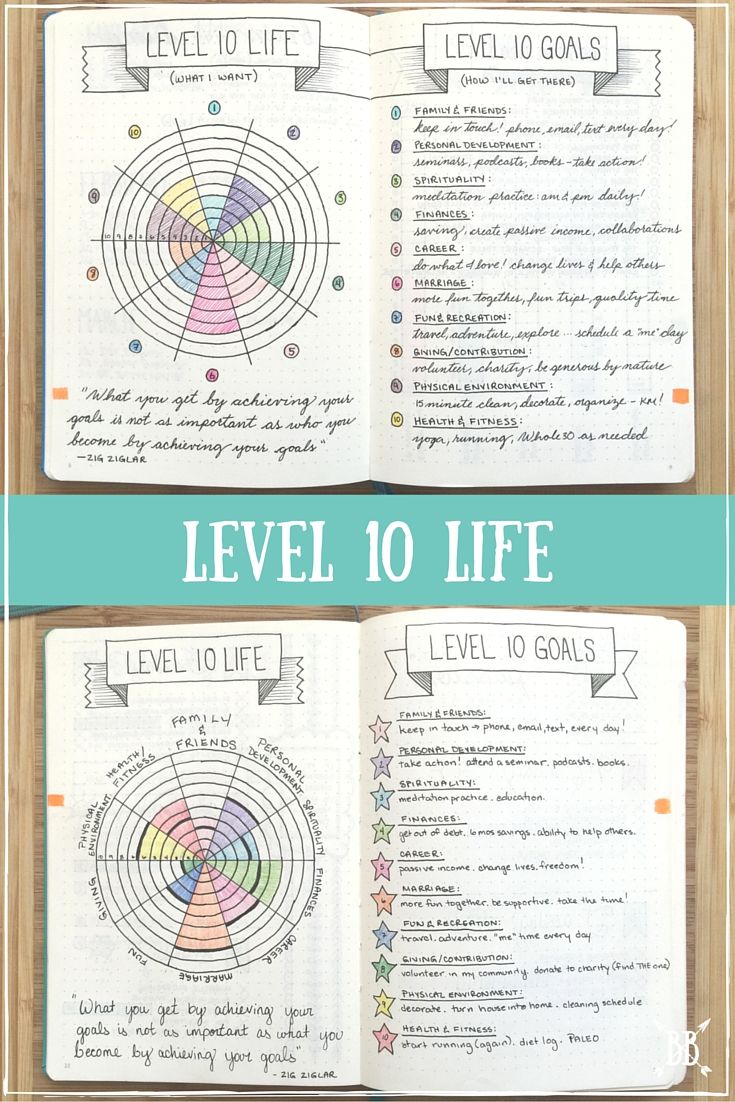 LEVEL 10 LIFE
(WHAT I WANT)
1
2
3
4
5
6
7
8
9
10
10 9 8 7 6 5 4 3 2 1
"What you get by achieving your
goals is not as important as who you
become by achieving your goals"
—ZIG ZIGLAR
LEVEL 10 GOALS
(HOW I'LL GET THERE)
1 FAMILY & FRIENDS:
keep in touch! phone, email, text every day!
2 PERSONAL DEVELOPMENT:
seminars, podcasts, books - take action!
3 SPIRITUALITY:
meditation practice: am & pm daily!
4 FINANCES:
saving, create passive income, collaborations
5 CAREER:
do what I love! change lives & help others
6 MARRIAGE:
more fun together, fun trips, quality time
7 FUN & RECREATION:
travel, adventure, explore ... schedule a "me" day
8 GIVING/CONTRIBUTION:
volunteer, charity, be generous by nature
9 PHYSICAL ENVIRONMENT:
15 minute clean, decorate, organize - KM!
10 HEALTH & FITNESS:
yoga, running, Whole 30 as needed
LEVEL 10 LIFE
LEVEL 10 LIFE
FAMILY
&
FRIENDS
PERSONAL
DEVELOPMENT
SPIRITUALITY
FINANCES
CAREER
MARRIAGE
FUN
GIVING
PHYSICAL
ENVIRONMENT
HEALTH/
FITNESS
"What you get by achieving your
goals is not as important as what you
become by achieving your goals"
- ZIG ZIGLAR
LEVEL 10 GOALS
FAMILY & FRIENDS:
1 keep in touch → phone, email, text, every day!
PERSONAL DEVELOPMENT:
2 take action! attend a seminar. podcasts. books.
SPIRITUALITY:
3 meditation practice. education.
FINANCES:
4 get out of debt. 6 mos savings. ability to help others.
CAREER:
5 passive income. change lives. freedom!
MARRIAGE:
6 more fun together. be supportive. take the time!
FUN & RECREATION:
7 travel. adventure. "me" time every day
GIVING/CONTRIBUTION:
8 volunteer in my community. donate to charity (find THE one)
PHYSICAL ENVIRONMENT:
9 decorate. turn house into home. cleaning schedule
HEALTH & FITNESS:
10 start running (again). diet log. PALEO
BB